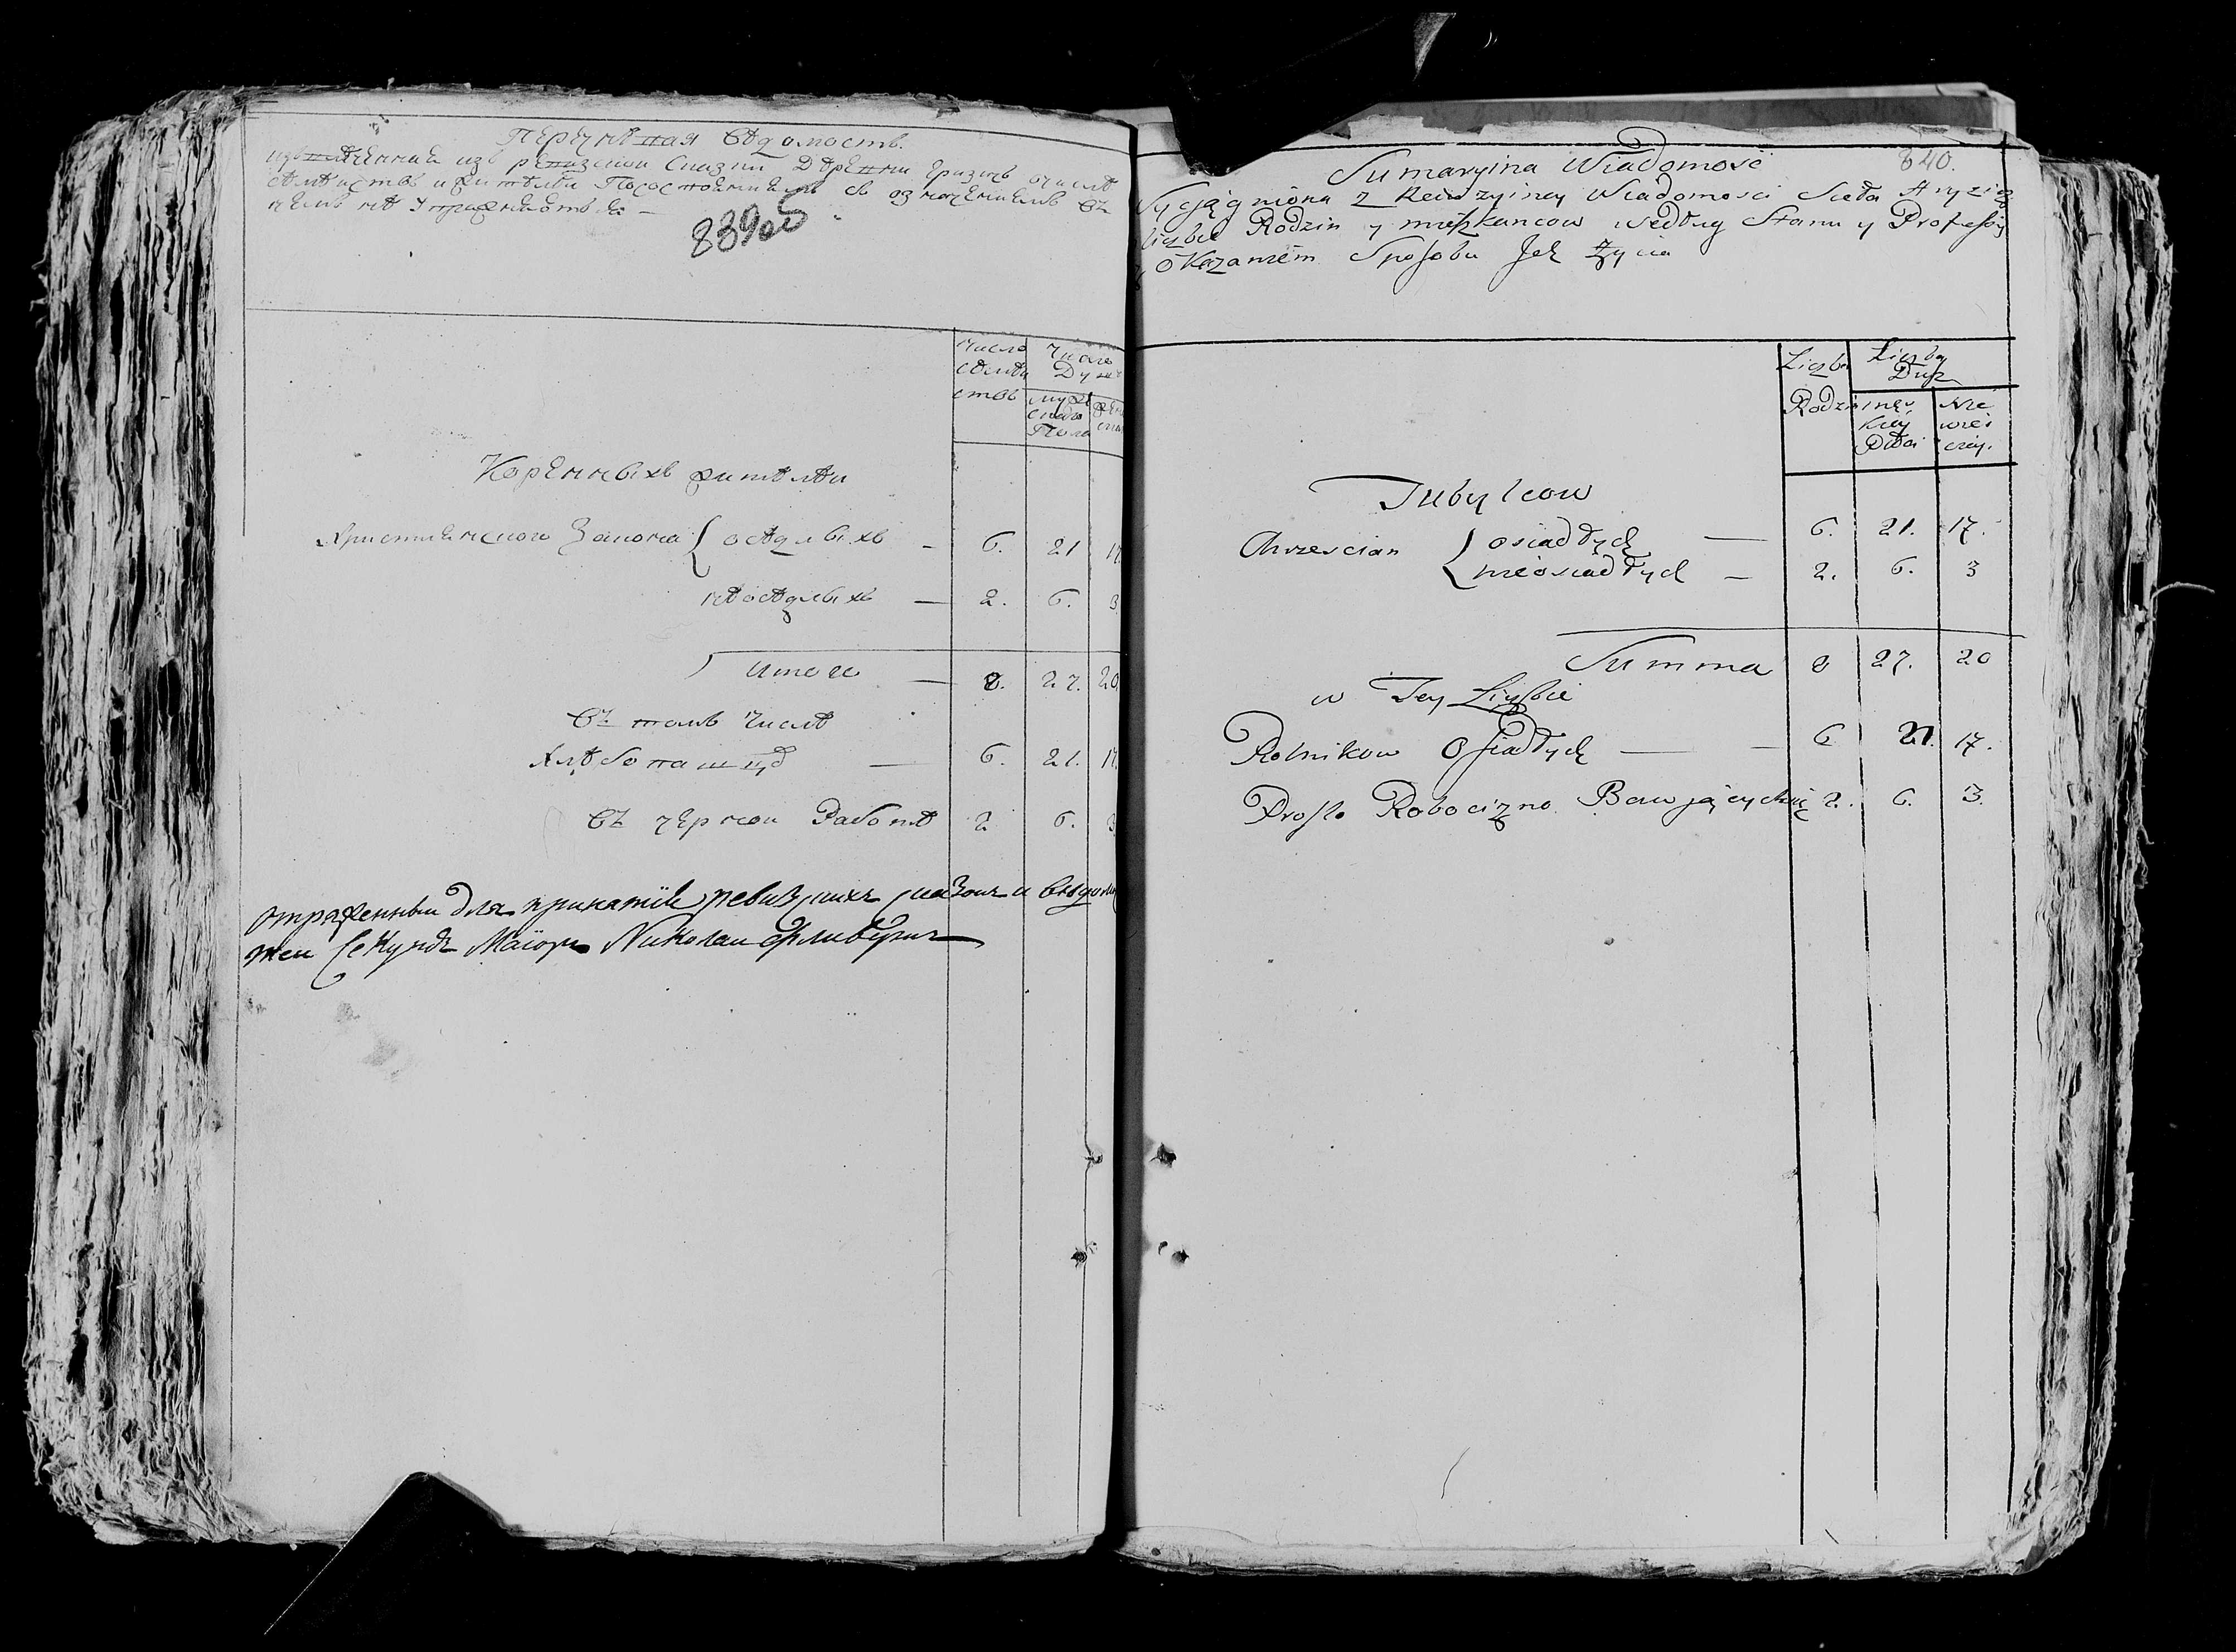 Перечневая вѣдомость.
извлеченная изъ ревизской Сказки Деревни Гризивъ о числѣ
семействъ и жителѣй По состояниямъ съ означениемъ въ
чемъ ихъ упражнения —
839об
Число семействъ
Число Душъ
мужеска Пола
жен
Коренныхъ жителѣй
Христианского Закона { осѣдлыхъ – 6. 21 17
неосѣдлыхъ — 2. 6. 3
Итого — 8. 27. 20
Въ томъ числѣ
Хлѣбопашцѣ — 6. 21. 17.
Въ черной Работѣ 2 6. 3
отряженный для принятія ревизскихъ сказокъ и вѣдомос
тей Секундъ Маіоръ Николай
840.
Sumaryina Wiadomosc
Wyciągniona z Rewizyiney Wiadomosci Sioła
liczbie Rodzin y mieszkancow według Stanu y Professyi
z okazaniem Sposobu Jch Zycia
Liczba Rodzin
Liczba Dusz
męs kiey Płci
Nie wies ciey.
Tubylcow
Chrzescian { osiadłych — 6. 21. 17.
nieosiadłych – 2. 6. 3
Summa 8 27. 20
w Tey Liczbie
Rolnikow Osiadłych — 6 21. 17.
Prosto Robocizno Bawjących się 2. 6. 3.